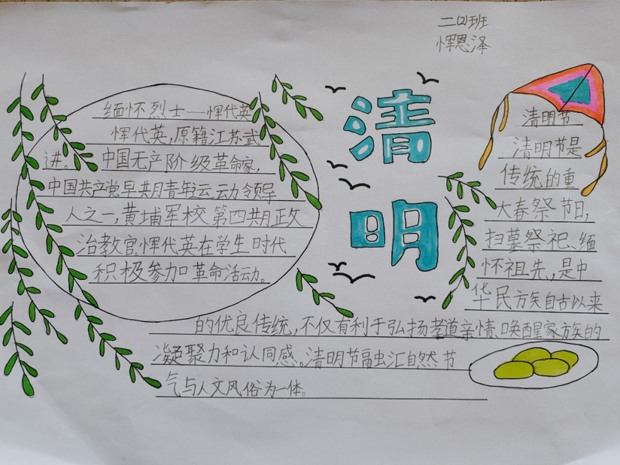 二(2)班
恽恩泽
清明
缅怀烈士——恽代英
恽代英,原籍江苏武
进。中国无产阶级革命家,
中国共产党早期青年运动领导
人之一,黄埔军校第四期政
治教官恽代英在学生时代
积极参加革命活动。
清明节
清明节是
传统的重
大春祭节日,
扫墓祭祀、缅
怀祖先,是中
华民族自古以来
的优良传统,不仅有利于弘扬孝道亲情、唤醒家族的
凝聚力和认同感。清明节融汇自然节
气与人文风俗为一体。